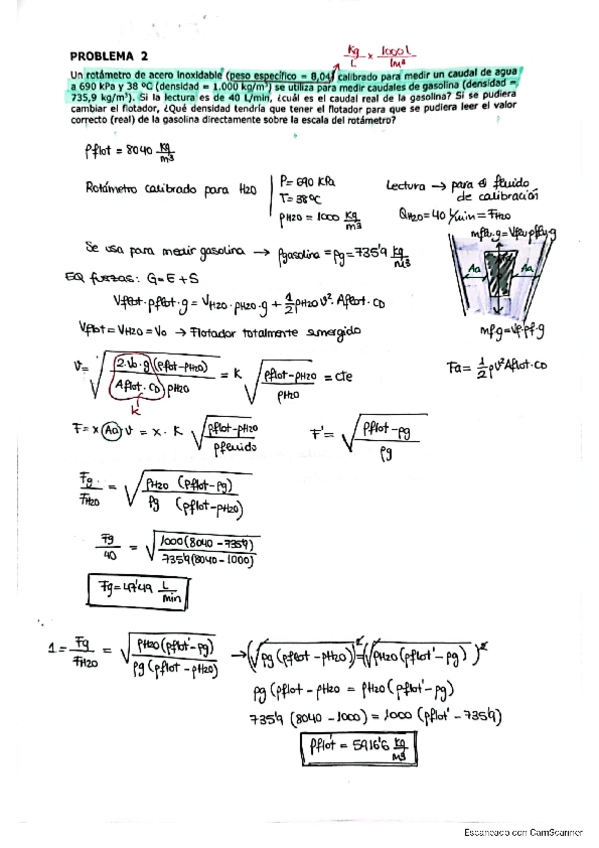 Kg/L x 1000 l/1m³
PROBLEMA 2
Un rotámetro de acero inoxidable (peso específico = 8,04) calibrado para medir un caudal de agua
a 690 kPa y 38 ºC (densidad = 1.000 kg/m³) se utiliza para medir caudales de gasolina (densidad =
735,9 kg/m³). Si la lectura es de 40 L/min, ¿cuál es el caudal real de la gasolina? Si se pudiera
cambiar el flotador, ¿Qué densidad tendría que tener el flotador para que se pudiera leer el valor
correcto (real) de la gasolina directamente sobre la escala del rotámetro?
ρflot = 8040 kg/m³
Rotámetro calibrado para H2O
P = 690 KPa
T = 38ºC
ρH2O = 1000 kg/m³
Lectura → para el fluido
de calibración
QH2O = 40 L/min = FH2O
Se usa para medir gasolina → ρgasolina = ρg = 735'9 kg/m³
EQ fuerzas: G = E + S
Vflot·ρflot·g = VH2O·ρH2O·g + 1/2 ρH2O v²·Aflot·CD
Vflot = VH2O = Vo → Flotador totalmente sumergido
Aa Aa
mf·g = Vf·ρf·g
Fa = 1/2 ρv²Aflot·CD
v = √(2·Vo·g(ρflot-ρH2O) / Aflot·CD ρH2O) = K √(ρflot-ρH2O / ρH2O) = cte
K
F = x Aa v = x · K √(ρflot-ρH2O / ρfluido)
F' = √(ρflot-ρg / ρg)
Fg/FH2O = √(ρH2O (ρflot-ρg) / ρg (ρflot-ρH2O))
Fg/40 = √(1000(8040-735'9) / 735'9(8040-1000))
Fg = 47'49 L/min
1 = Fg/FH2O = √(ρH2O(ρflot'-ρg) / ρg(ρflot-ρH2O)) → (√ρg(ρflot-ρH2O))² = (√ρH2O(ρflot'-ρg))²
ρg(ρflot-ρH2O = ρH2O(ρflot'-ρg)
735'9 (8040-1000) = 1000 (ρflot' - 735'9)
ρflot' = 5916'6 kg/m³
Escaneado con CamScanner